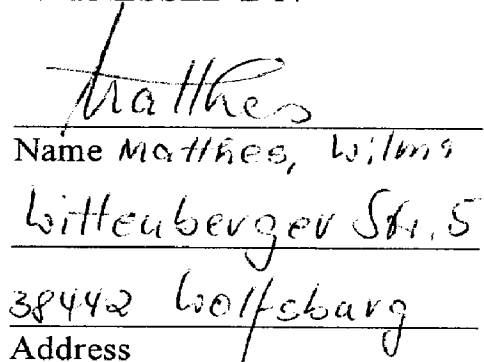 Matthes
Name Matthes, Wilma
Wittenberger Str. 5
38442 Wolfsburg
Address